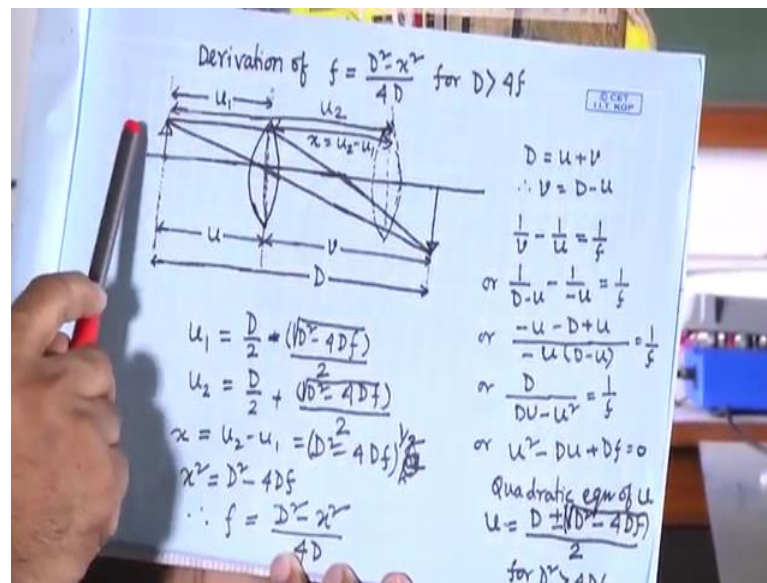 Derivation of f = D²-x² / 4D for D > 4f
© CET
I.I.T. KGP
u₁
u₂
x = u₂-u₁
u
v
D
u₁ = D/2 - (√D²-4Df)/2
u₂ = D/2 + (√D²-4Df)/2
x = u₂-u₁ = (D²-4Df)^1/2
x² = D²-4Df
∴ f = D²-x² / 4D
D = u+v
∴ v = D-u
1/v - 1/u = 1/f
or 1/D-u - 1/-u = 1/f
or -u-D+u / -u(D-u) = 1/f
or D / Du-u² = 1/f
or u²-Du+Df=0
Quadratic eqn of u
u = D ± (√D²-4Df) / 2
for D² > 4Df